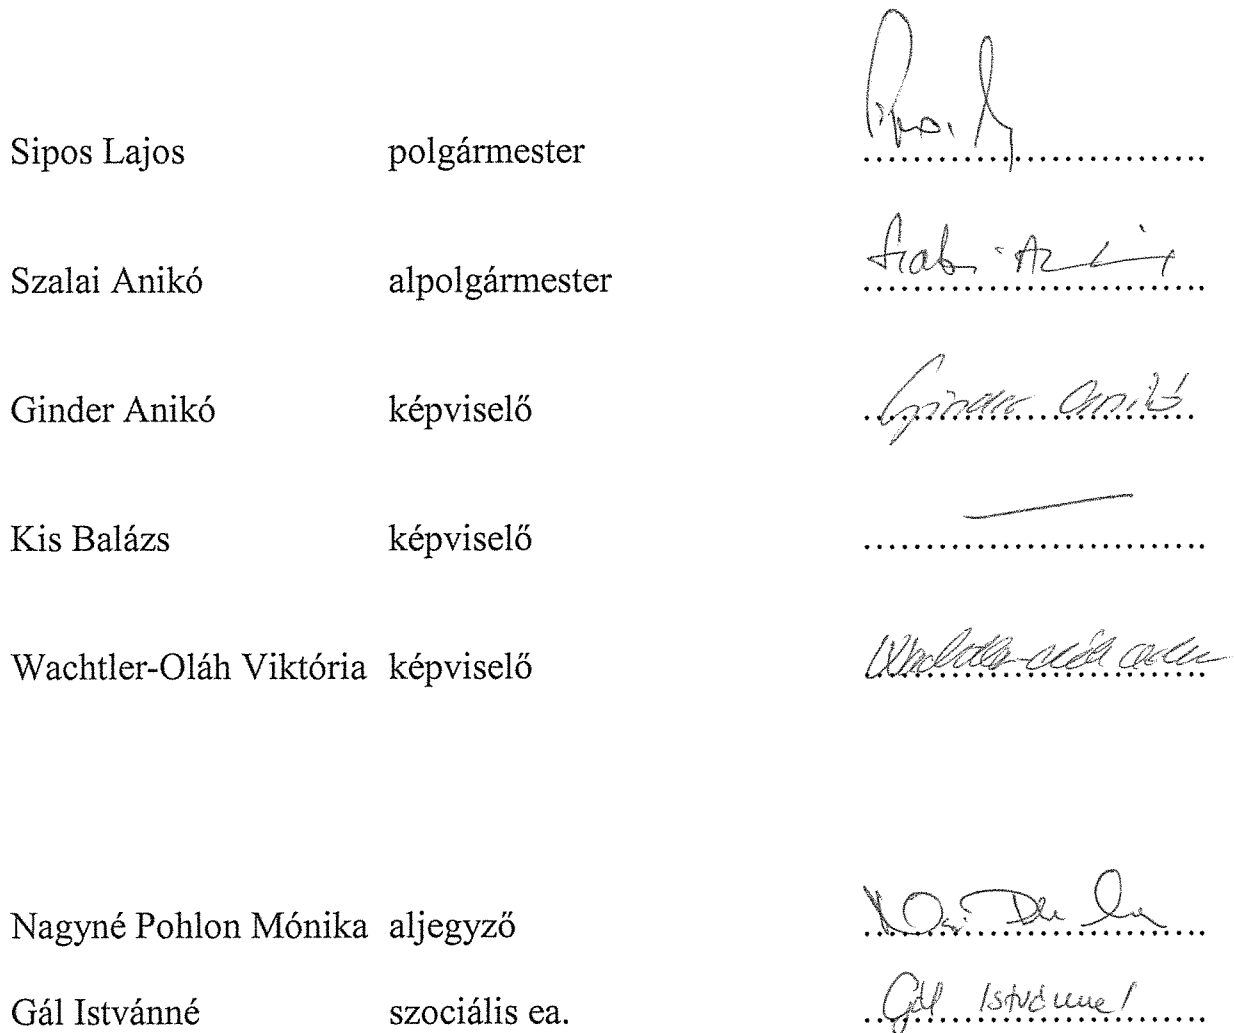 Sipos Lajos polgármester ..............................
Szalai Anikó alpolgármester ..............................
Ginder Anikó képviselő Ginder Anikó
Kis Balázs képviselő ..............................
Wachtler-Oláh Viktória képviselő ..............................
Nagyné Pohlon Mónika aljegyző ..............................
Gál Istvánné szociális ea. Gál Istvánné